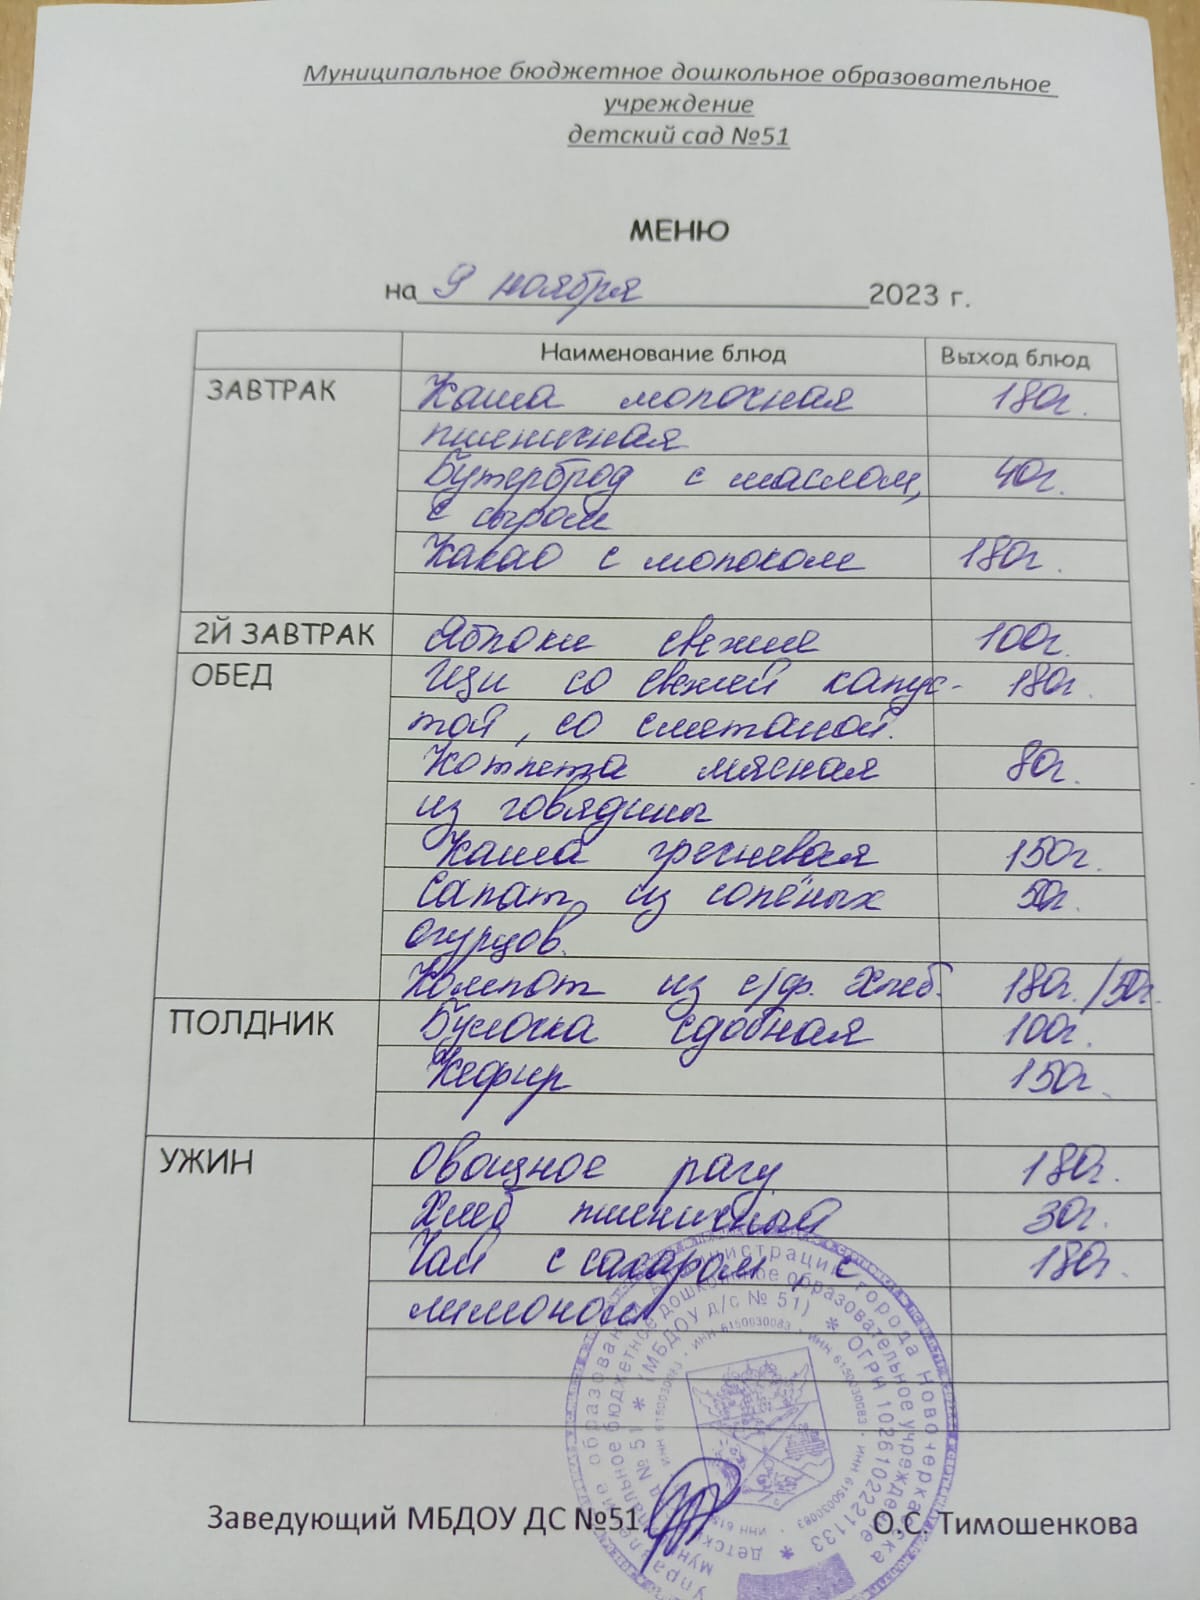 Муниципальное бюджетное дошкольное образовательное
учреждение
детский сад №51
МЕНЮ
на 9 ноября 2023 г.
Наименование блюд Выход блюд
ЗАВТРАК Каша молочная 180г.
пшеничная
Бутерброд с маслом, 40г.
с сыром
Какао с молоком 180г.
2Й ЗАВТРАК Яблоки свежие 100г.
ОБЕД Щи со свежей капус- 180г.
той, со сметаной.
Котлета мясная 80г.
из говядины
Каша гречневая 150г.
Салат из солёных 50г.
огурцов.
Компот из с/фр. Хлеб. 180г./50г.
ПОЛДНИК Булочка сдобная 100г.
Кефир 150г.
УЖИН Овощное рагу 180г.
Хлеб пшеничный 30г.
Чай с сахаром, с 180г.
лимоном
Администрации города Новочеркасска
бюджетное дошкольное образовательное учреждение
(МБДОУ д/с № 51) * ОГРН 1026102221133 *
ИНН 6150030083
Заведующий МБДОУ ДС №51 О.С. Тимошенкова